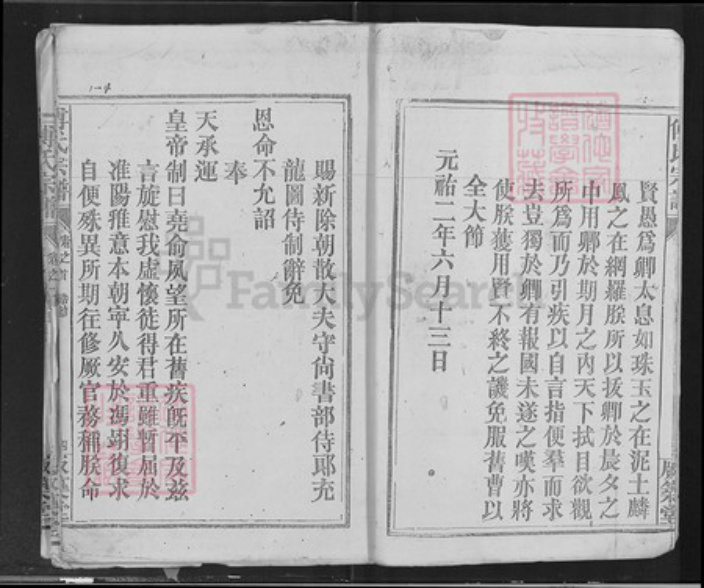 賢愚爲卿太息如珠玉之在泥土麟
鳳之在網羅朕所以拔卿於晨夕之
中用卿於期月之內天下拭目欲觀
所爲而乃引疾以自言指便羣而求
去豈獨於卿有報國未遂之嘆亦將
使朕獲用賢不終之譏免服舊曹以
全大節
元祐二年六月十三日
賜新除朝散大夫守尙書部侍郎充
龍圖待制辭免
恩命不允詔
奉
天承運
皇帝制曰堯俞風望所在舊疾旣平及茲
言旋慰我虛懷徒得君重雖暫屈於
淮陽雅意本朝寧久安於馮翊復求
自便殊異所期往修厥官務稱朕命
傅氏宗譜
卷之首
FamilySearch